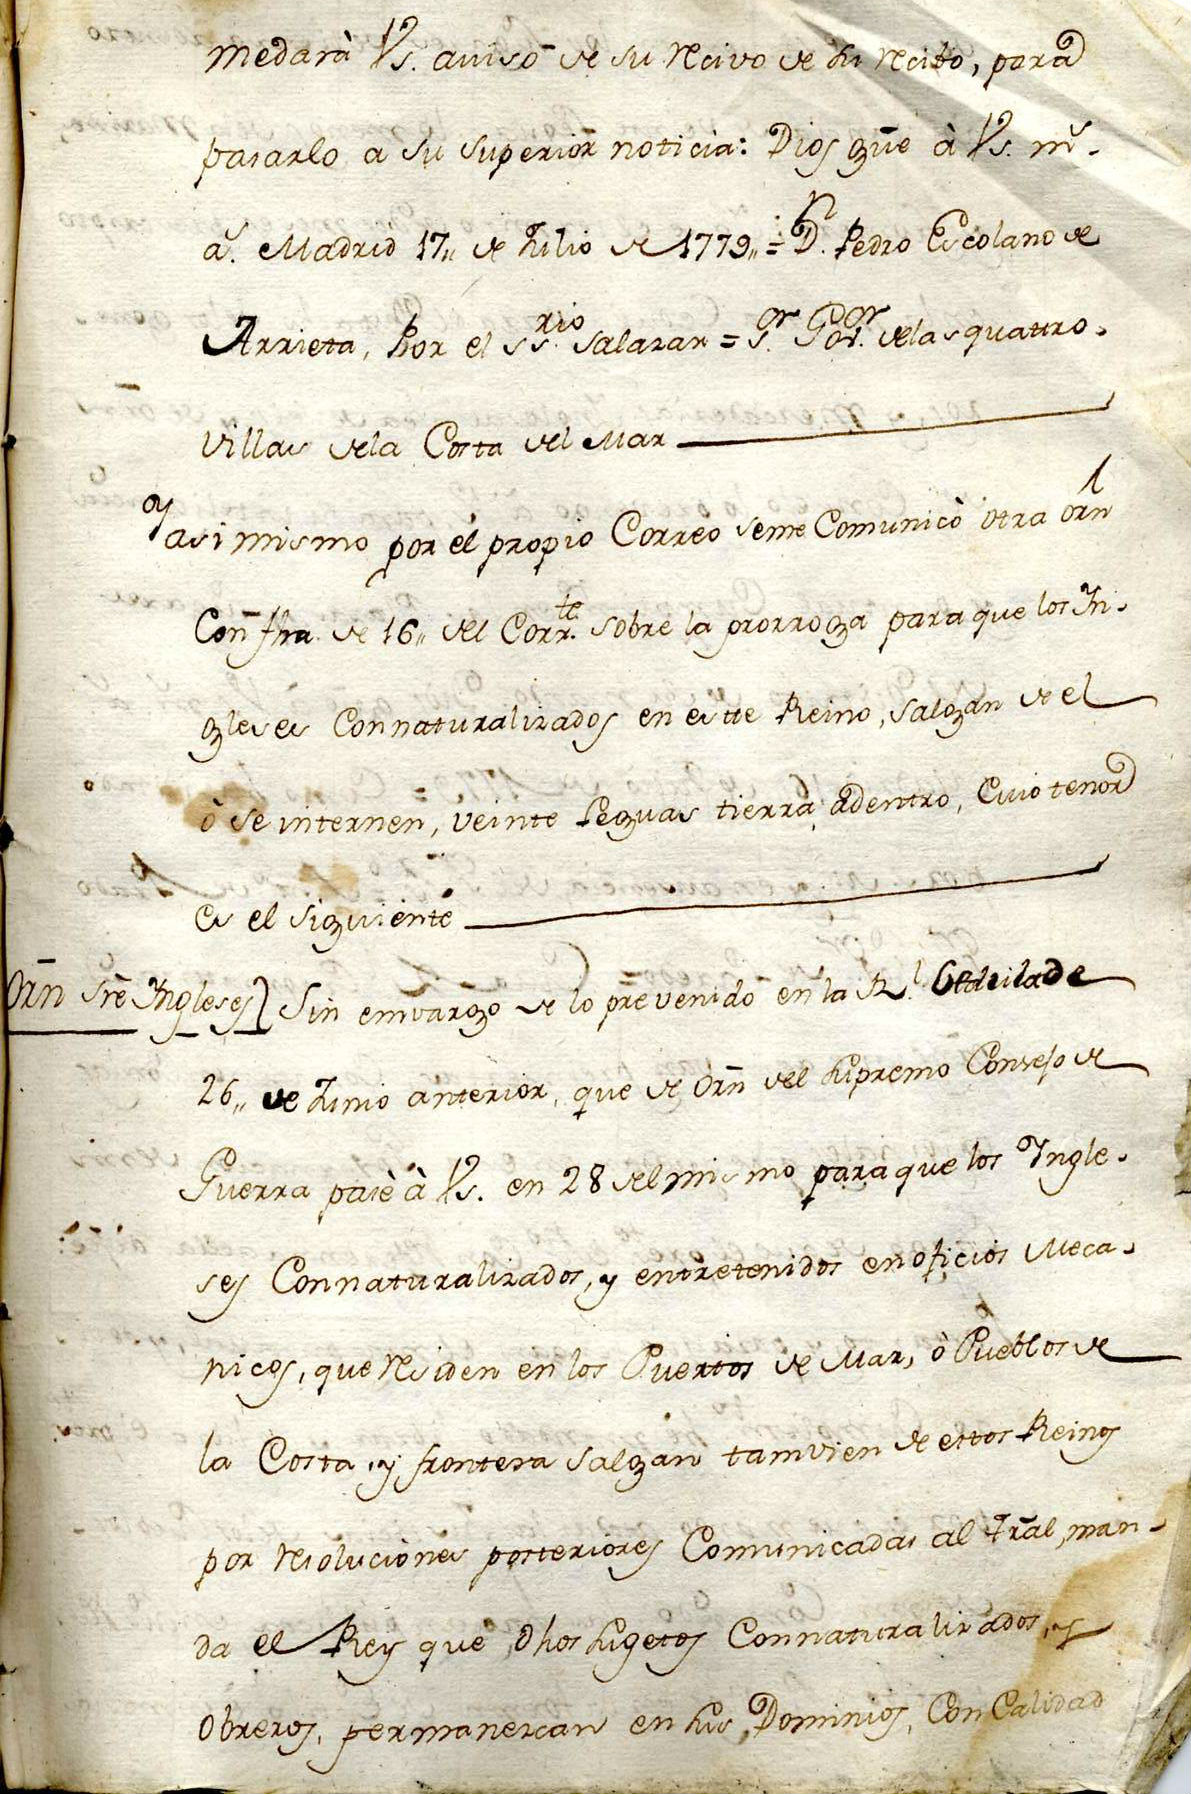 medarà Vs. aviso de su recivo de su recivo, para
pasarlo a su superior noticia: Dios gūe à Vs. ms.
as. Madrid 17,, de Julio de 1779,, = Dn. Pedro Escolano de
Arrieta, Por el ssrio. Salazar = sor. Gor. delas quatro.
Villas dela Costa del Mar
y asi mismo por el propio Correo seme Comunicò otra orn
Con fha de 16,, del Corrte. sobre la prorroga para que los In-
gleses Connaturalizados en este Reino, salgan de el
ò se internen, veinte Leguas tierra adentro, Cuio tenor
es el siguiente
Orn sre Ingleses} Sin emvargo de lo prevenido en la Rl. Cedula de
26,, de Junio anterior, que de Orn del Supremo Consejo de
Guerra pasè à Vs. en 28 del mismo para que los Ingle-
ses Connaturalizados, y entretenidos en oficios Meca-
nicos, que residen en los Puertos de Mar, ò Pueblos de
la Costa, y frontera salgan tamvien de estos Reinos
por resoluciones posteriores Comunicadas al Tral, man-
da el Rey que dhos sugetos Connaturalizados, y
Obreros, permanezcan en sus Dominios, Con Calidad